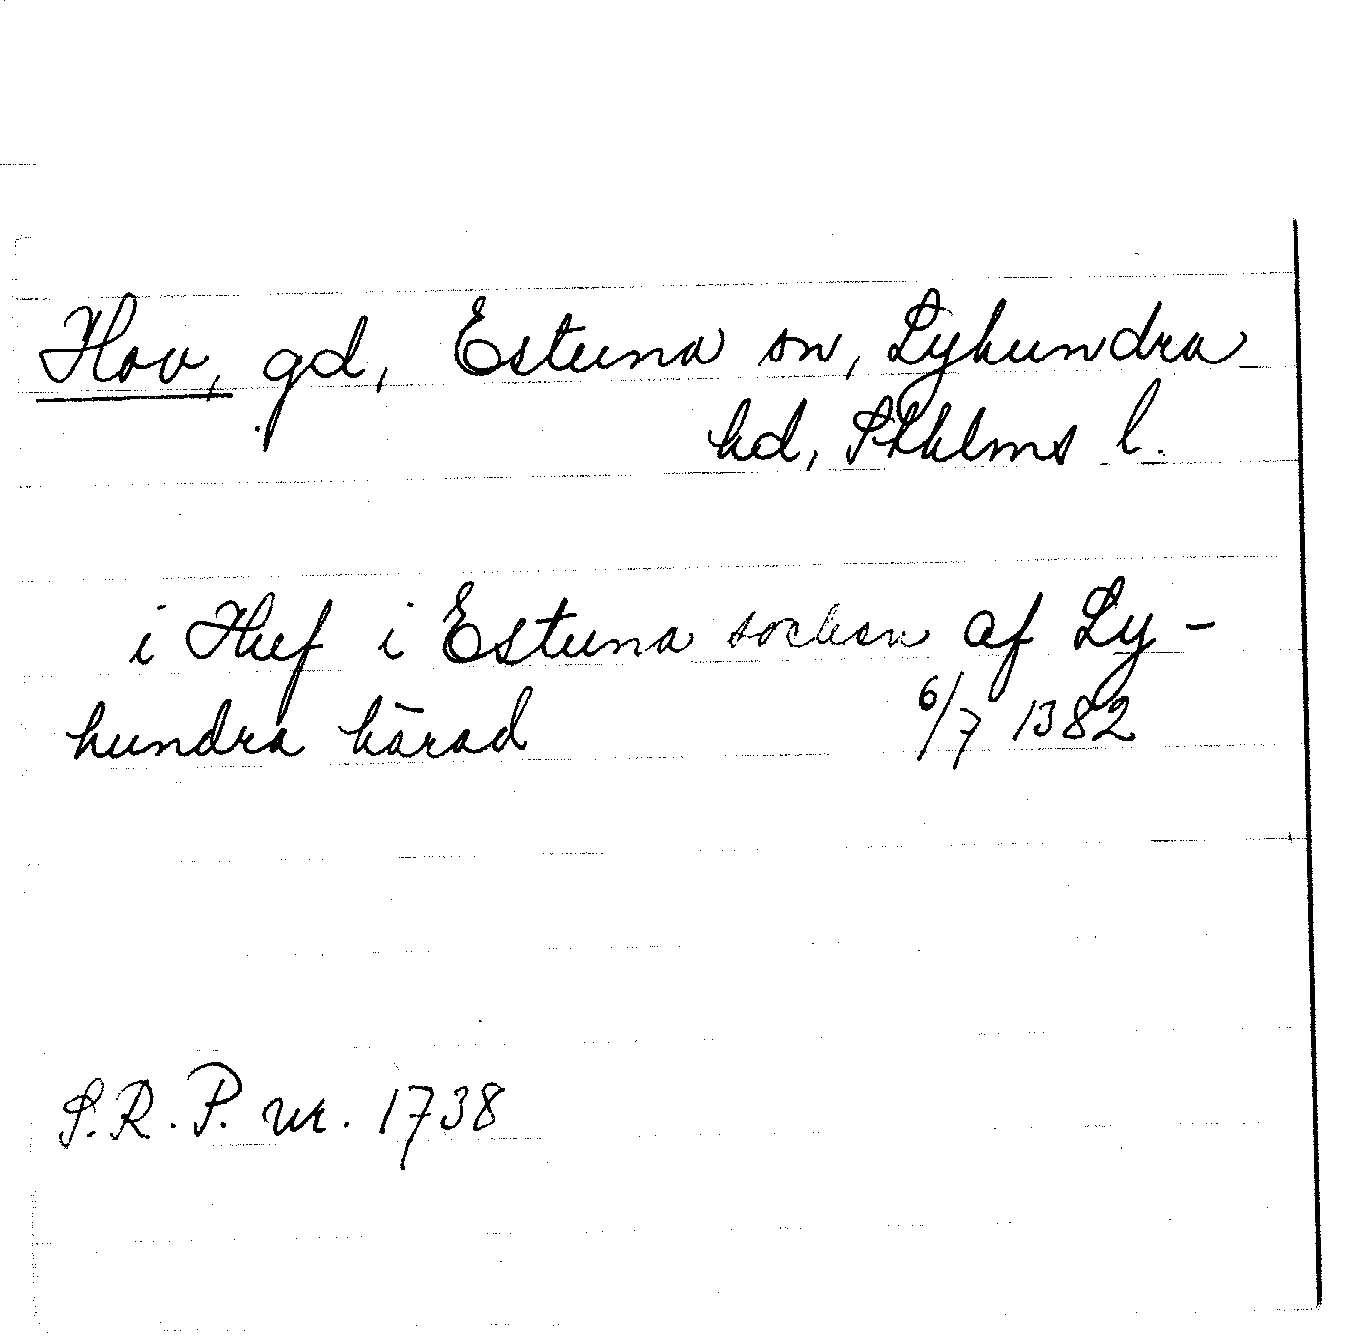 Hov, gd, Estuna sn, Lyhundra
hd, Sthlms l.
i Huf i Estuna socken af Ly-
hundra härad 6/7 1382
S.R.P. nr. 1738